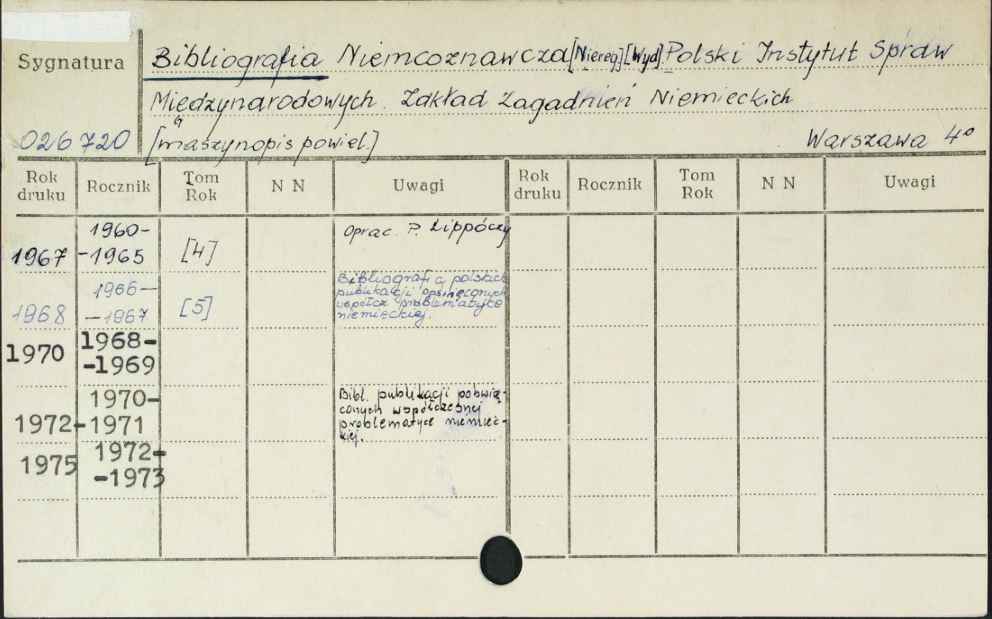 Sygnatura
Bibliografia Niemcoznawcza [Niereg] [Wyd] Polski Instytut Spraw
Międzynarodowych. Zakład Zagadnień Niemieckich
026720 [maszynopis powiel.] Warszawa 4°
Rok druku Rocznik Tom Rok N N Uwagi Rok druku Rocznik Tom Rok N N Uwagi
1967 1960-
-1965 [4] Oprac. P. Lippóczy
1968 1966-
-1967 [5] Bibliografia polskich
publikacji
współcz. problematyce
niemieckiej.
1970 1968-
-1969
1972 1970-
-1971 Bibl. publikacji poświę-
conych współczesnej
problematyce niemiec-
kiej.
1975 1972-
-1973